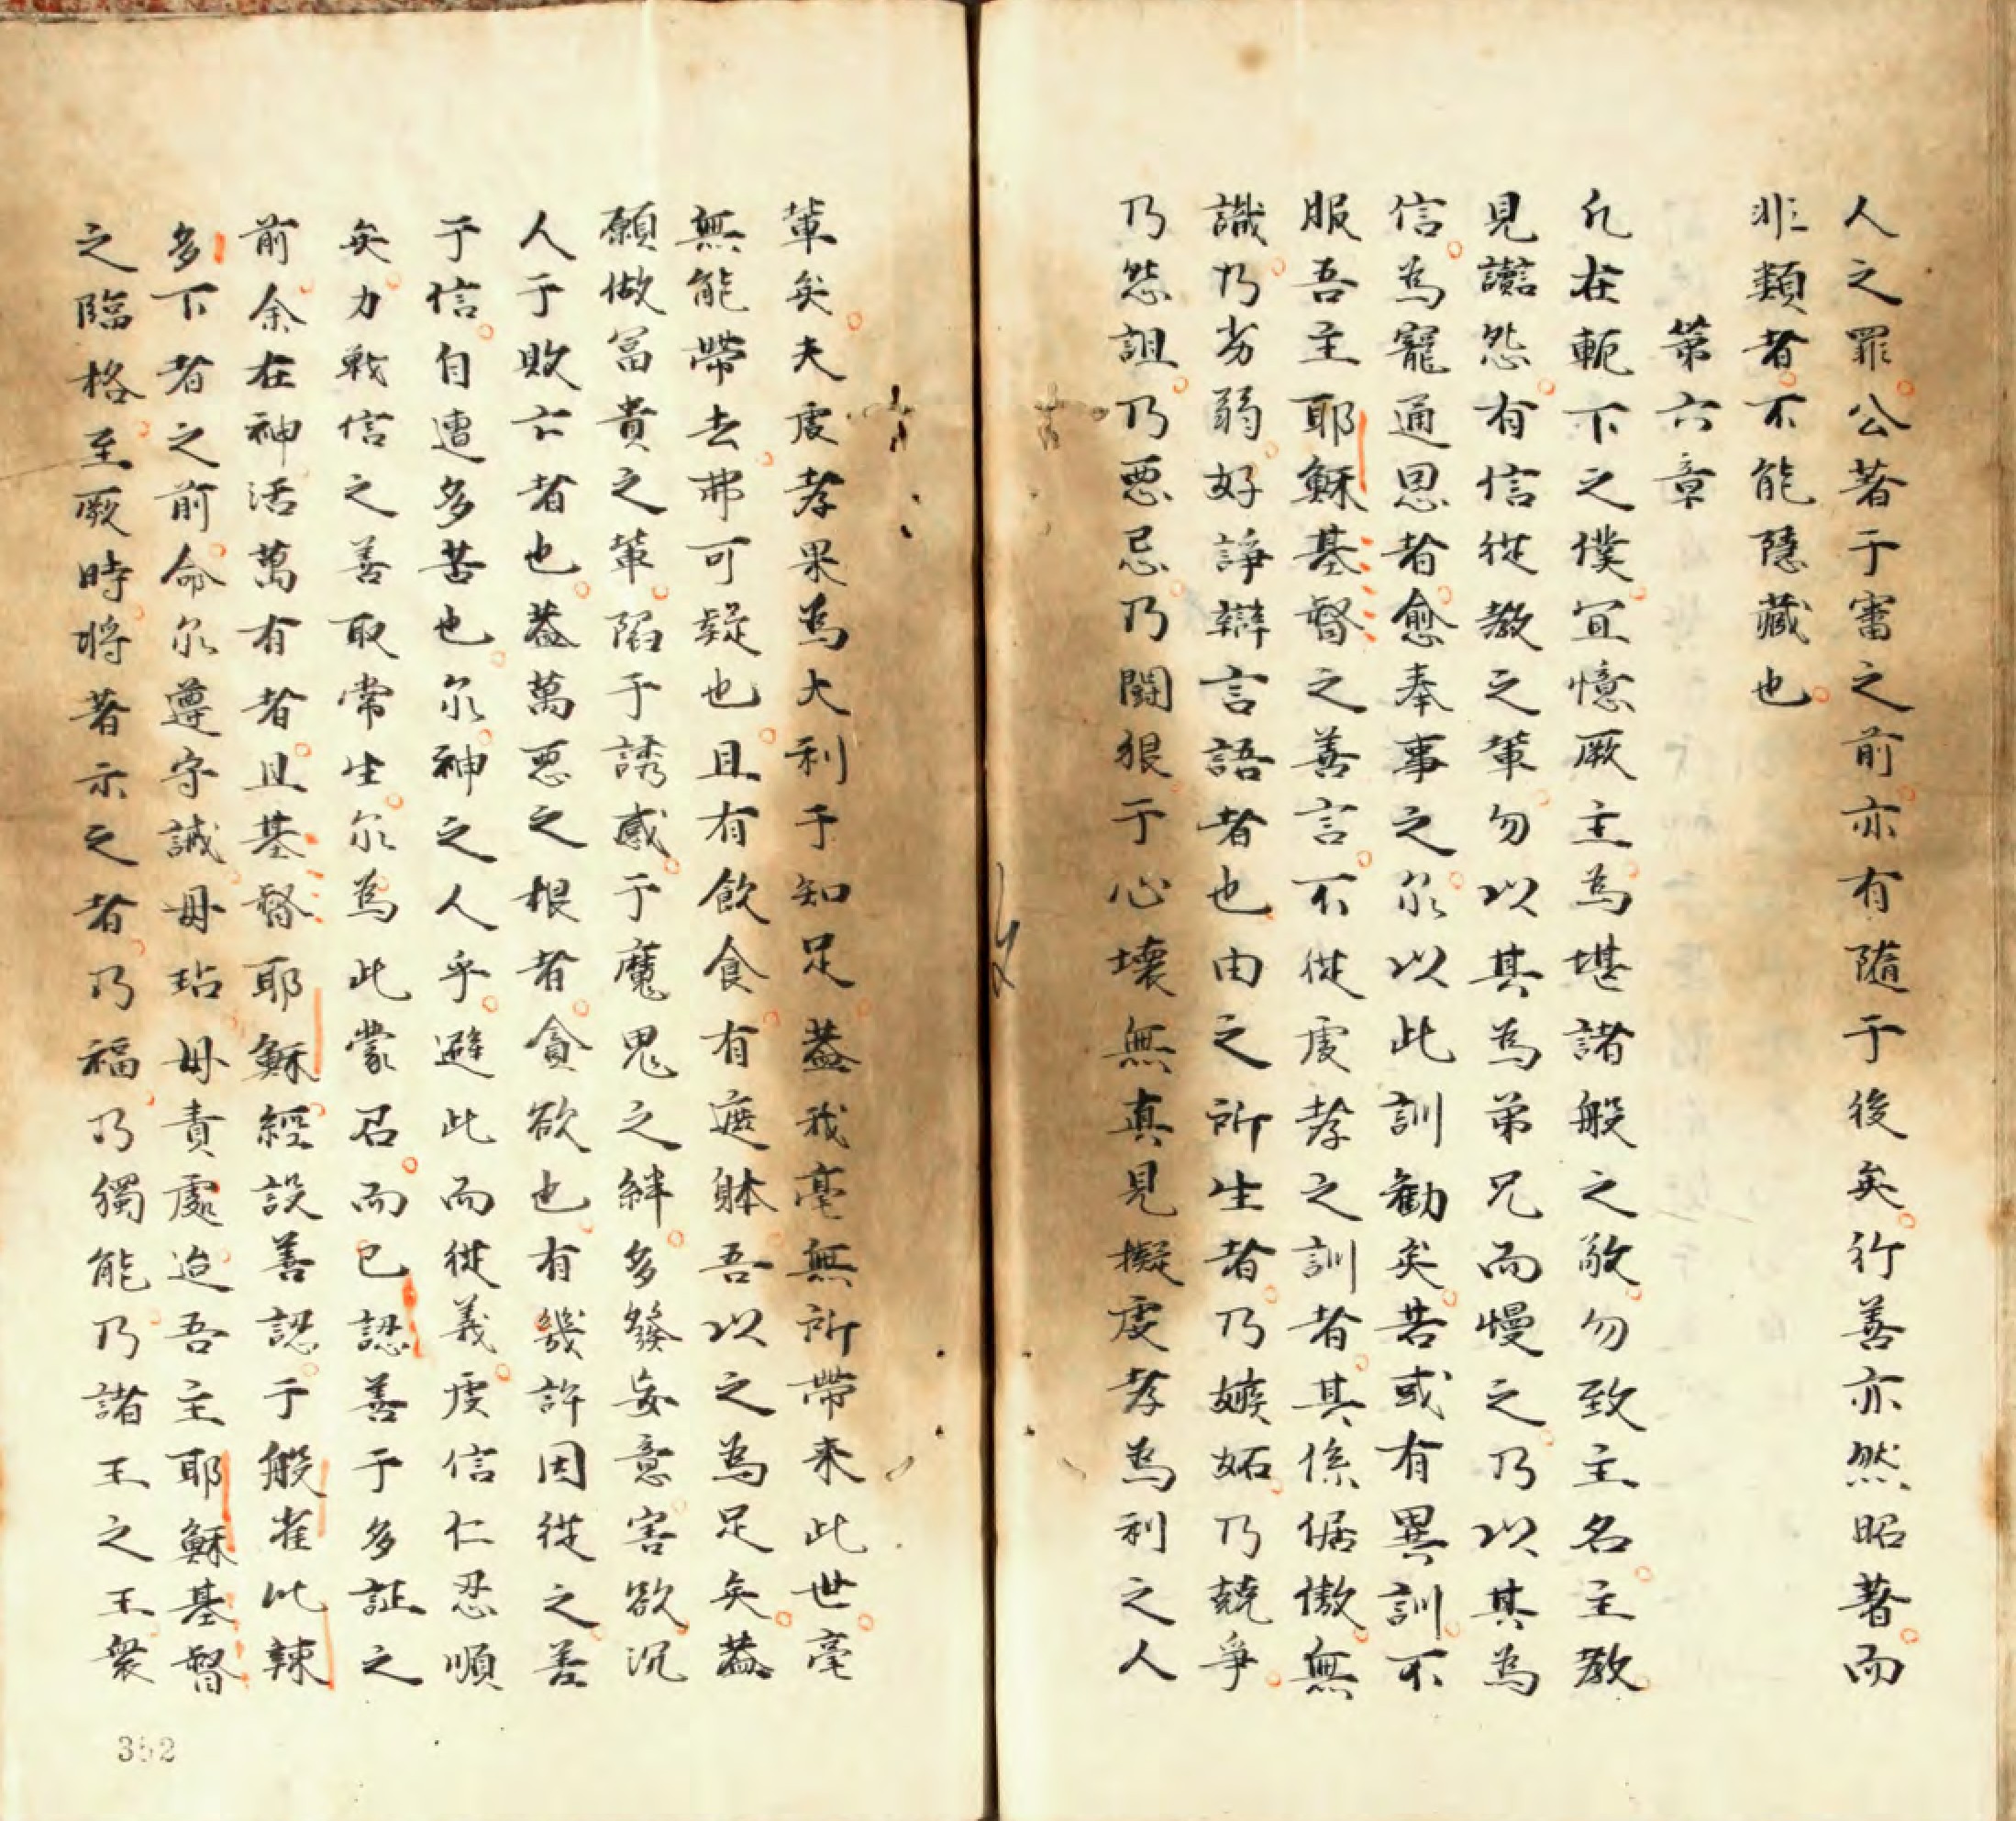 人之罪公著于審之前亦有隨于後矣行善亦然昭著而
非類者不能隱藏也
第六章
凢在軛下之僕宜憶厥主為堪諸般之敬勿致主名主教
見讟怨有信從教之輩勿以其為弟兄而慢之乃以其為
信為寵通恩者愈奉事之尔以此訓勸矣若或有異訓不
服吾主耶穌基督之善言不從虔孝之訓者其係倨傲無
識乃劣弱好諍辯言語者也由之所生者乃嫉妬乃競爭
乃怨詛乃惡忌乃鬪狠于心壞無真見擬虔孝為利之人
輩矣夫虔孝果為大利于知足葢我毫無所帶来此世毫
無能帶去弗可疑也且有飲食有遮躰吾以之為足矣葢
願做冨貴之輩陷于誘感于魔鬼之絆多發妄意害欲沉
人于敗亡者也葢萬惡之根者貪欲也有幾許因從之差
于信自遭多苦也尔神之人乎避此而從義虔信仁忍順
矣力戰信之善取常生尔為此蒙召而已認善于多証之
前余在神活萬有者且基督耶穌經設善認于般雀比辣
多下者之前命尔遵守誡毋玷毋責處迨吾主耶穌基督
之臨格至厥時將著示之者乃福乃獨能乃諸王之王衆
352